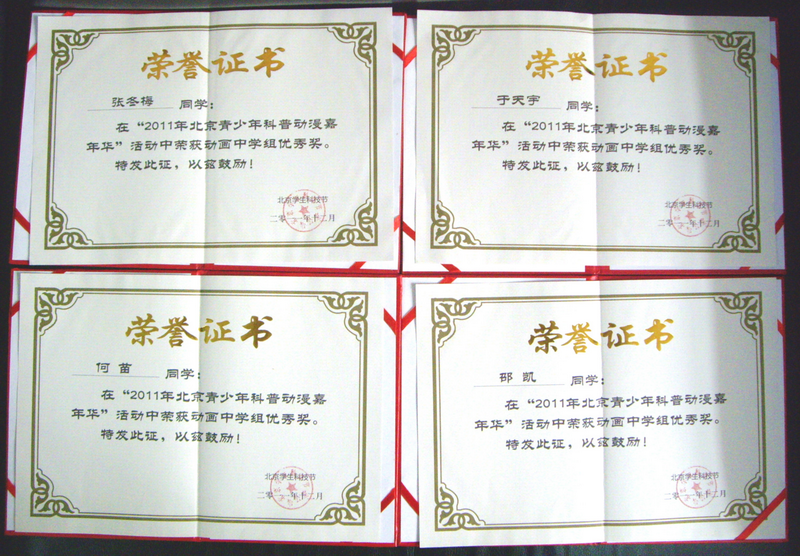 荣誉证书
张冬梅 同学：
在“2011年北京青少年科普动漫嘉
年华”活动中荣获动画中学组优秀奖。
特发此证，以兹鼓励！
北京学生科技节
二零一一年十二月
荣誉证书
于天宇 同学：
在“2011年北京青少年科普动漫嘉
年华”活动中荣获动画中学组优秀奖。
特发此证，以兹鼓励！
北京学生科技节
二零一一年十二月
荣誉证书
何苗 同学：
在“2011年北京青少年科普动漫嘉
年华”活动中荣获动画中学组优秀奖。
特发此证，以兹鼓励！
北京学生科技节
二零一一年十二月
荣誉证书
邵凯 同学：
在“2011年北京青少年科普动漫嘉
年华”活动中荣获动画中学组优秀奖。
特发此证，以兹鼓励！
北京学生科技节
二零一一年十二月